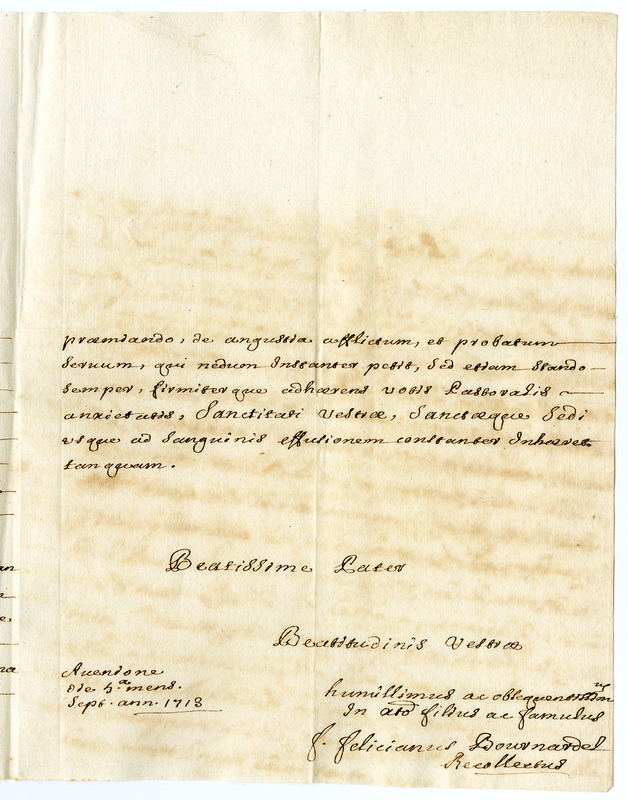 præmiando, de angustia afflictum, et probatum
servum, qui nedum Instanter petit, sed etiam stando
semper, firmiterque adhærens votis Pastoralis
anxietatis, Sanctitati Vestræ, Sanctæque Sedi
usque ad sanguinis effusionem constanter Inhæret
tanquam.
Beatissime Pater
Beatitudinis Vestræ
Avenione
die 4.a mens.
Sept. ann. 1718
humillimus ac obsequentissimus
In Xto filius ac famulus
f. felicianus Bournardel
Recollectus
an
e,
ra